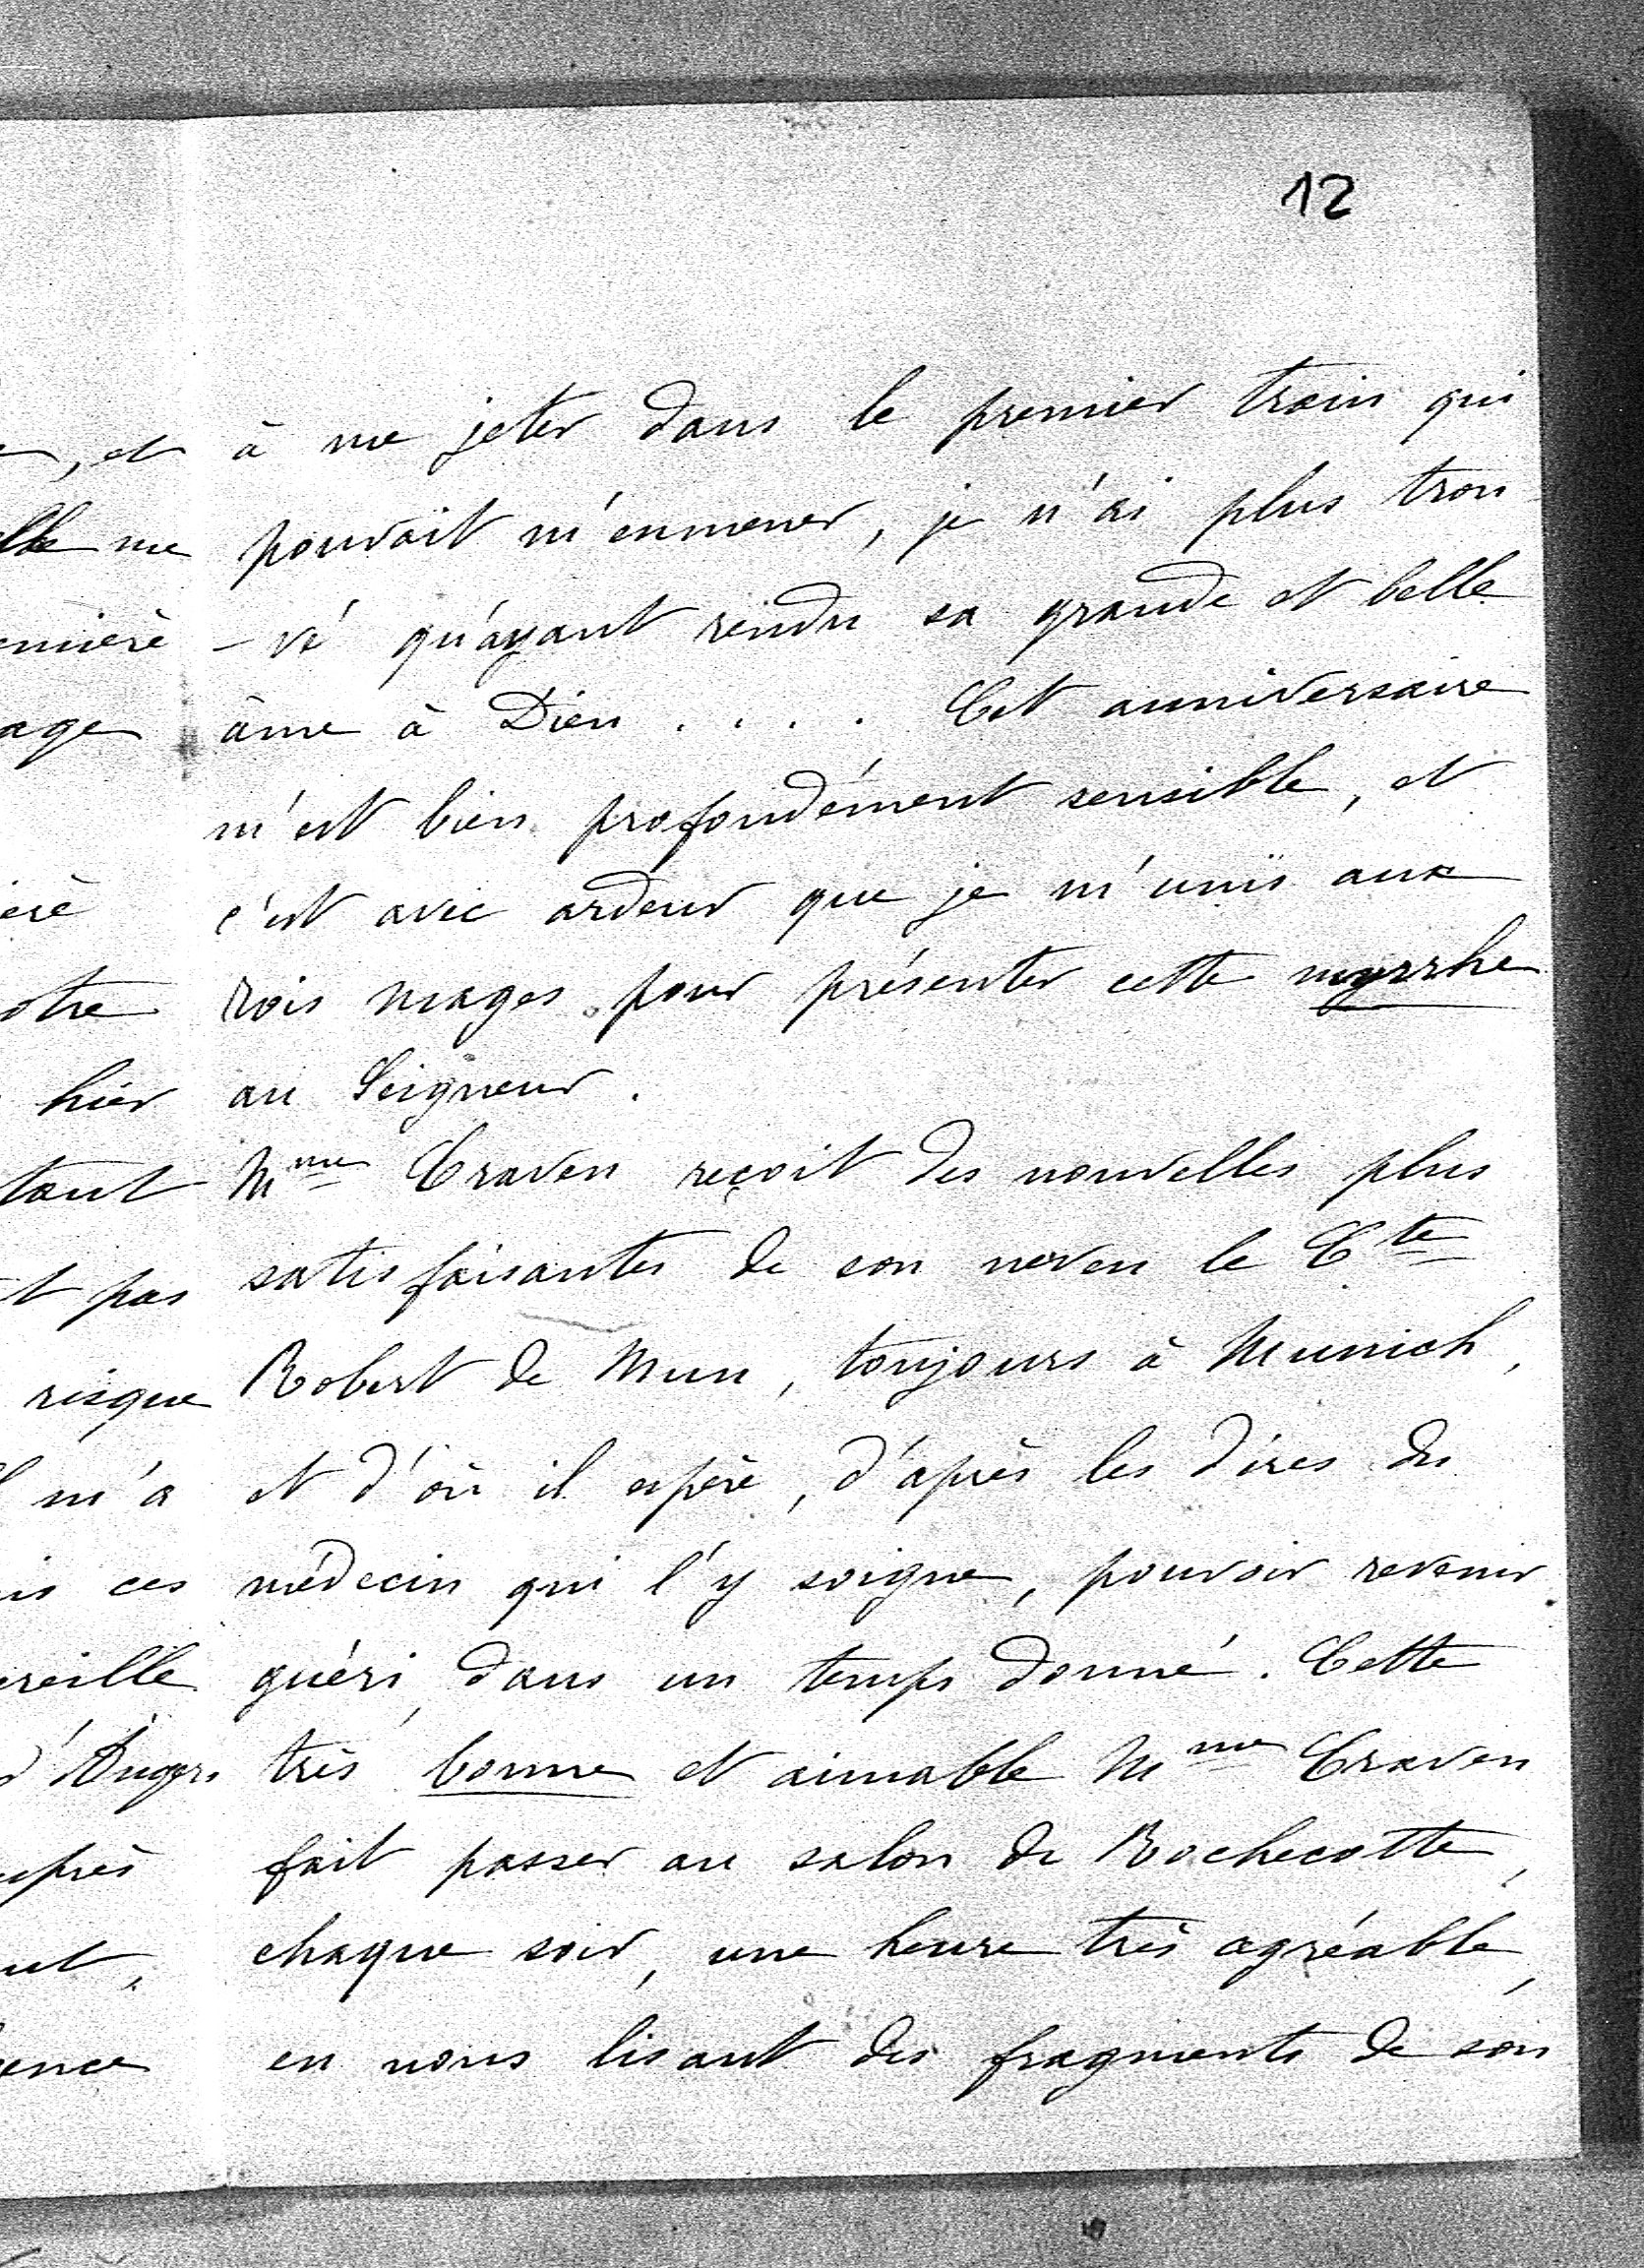 12
à me jeter dans le premier train qui
pouvait m'emmener, je n'ai plus trou
-vé qu'ayant rendu sa grande et belle
âme à Dieu . . . . Cet anniversaire
m'est bien profondément sensible, et
c'est avec ardeur que je m'unis aux
rois mages pour présenter cette myrrhe
au Seigneur.
Mme Craven reçoit des nouvelles plus
satisfaisantes de son neveu le Cte
Robert de Mun, toujours à Munich,
et d'où il espère, d'après les dires du
médecin qui l'y soigne, pouvoir revenir
guéri, dans un temps donné. Cette
très bonne et aimable Mme Craven
fait passer au salon de Rochecotte,
chaque soir, une heure très agréable,
en nous lisant des fragments de son
, et
me
age
otre
hier
tant
pas
risque
m'a
ces
d'Angers